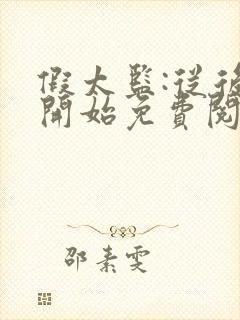 假太監:從後
開始免費閱
邵素雯